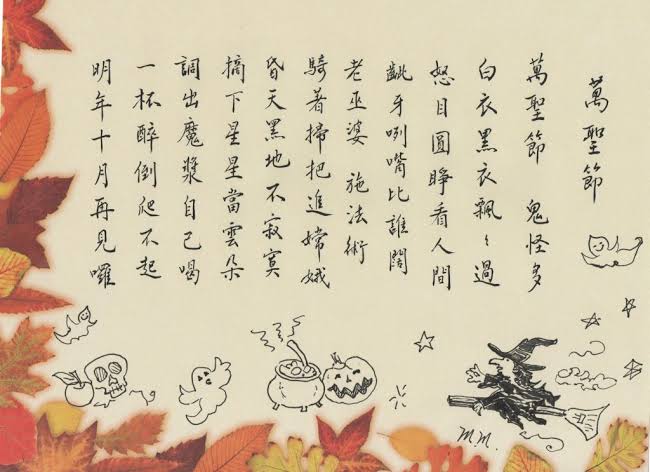 萬聖節
萬聖節 鬼怪多
白衣黑衣飄々過
怒目圓睜看人間
齜牙咧嘴比誰闊
老巫婆 施法術
騎著掃把進嫦娥
昏天黑地不寂寞
摘下星星當雲朵
調出魔漿自己喝
一杯醉倒爬不起
明年十月再見囉
M.M.